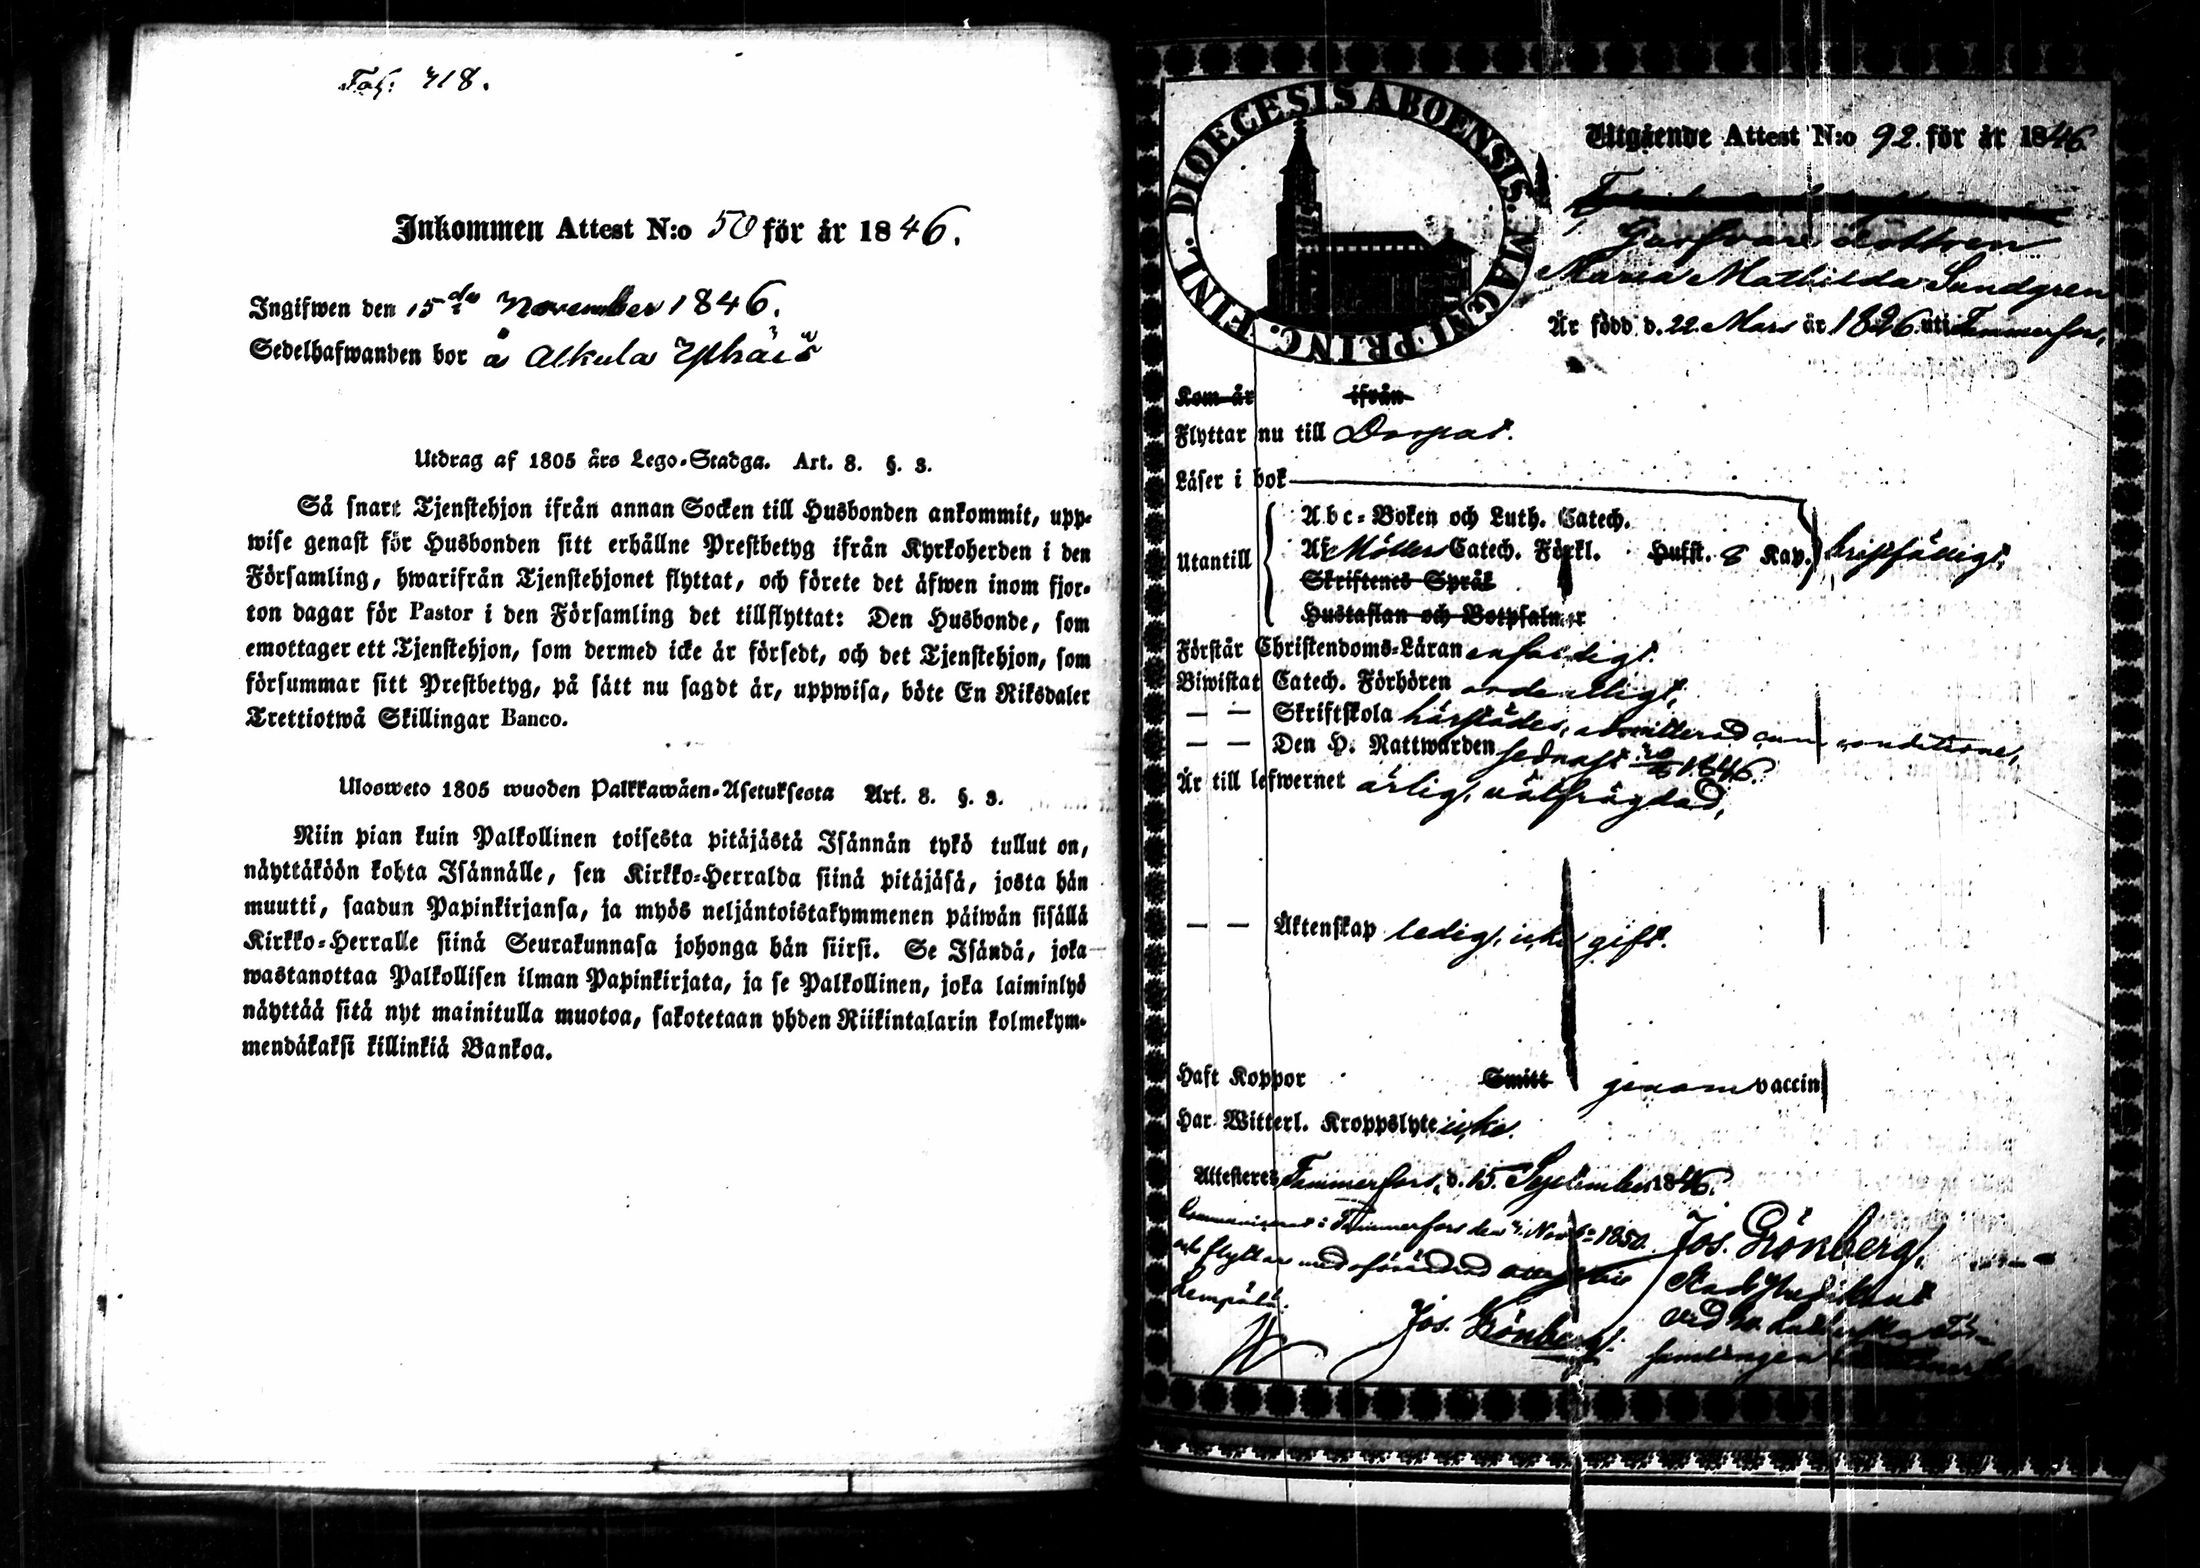 Fol. 718.
Inkommen Attest N:o 50 för år 1846.
Ingifwen den 15de November 1846.
Sedelhafwanden bor å Alkula
Utdrag af 1805 års Lego-Stadga. Art. 8. §. 3.
Så snart Tjenstehjon ifrån annan Socken till Husbonden ankommit, upp-
wise genast för Husbonden sitt erhållne Prestbetyg ifrån Kyrkoherden i den
Församling, hwarifrån Tjenstehjonet flyttat, och förete det äfwen inom fjor-
ton dagar för Pastor i den Församling det tillflyttat: Den Husbonde, som
emottager ett Tjenstehjon, som dermed icke är försedt, och det Tjenstehjon, som
försummar sitt Prestbetyg, på sätt nu sagdt är, uppwisa, böte En Riksdaler
Trettiotwå Skillingar Banco.
Ulosweto 1805 wuoden Palkkawäen-Asetuksesta Art. 8. §. 3.
Niin pian kuin Palkollinen toisesta pitäjästä Isännän tykö tullut on,
näyttäköön kohta Isännälle, sen Kirkko-Herralda siinä pitäjäsä, josta hän
muutti, saadun Papinkirjansa, ja myös neljäntoistakymmenen päiwän sisällä
Kirkko-Herralle siinä Seurakunnasa johonga hän siirsi. Se Isändä, joka
wastanottaa Palkollisen ilman Papinkirjata, ja se Palkollinen, joka laiminlyö
näyttää sitä nyt mainitulla muotoa, sakotetaan yhden Riikintalarin kolmekym-
mendäkaksi killinkiä Bankoa.
DIOECESIS ABOENSIS. MAGNI PRINC. FINL.
Utgående Attest N:o 92. för år 1846
Garfvare dottren
Maria Mathilda Sundgren
Är född d. 22. Mars år 1826 uti Tammerfors,
Kom år ifrån
Flyttar nu till Dorpat.
Läser i bok
Utantill
Abc-Boken och Luth. Catech.
Af Möllers Catech. Förkl. Hufst. 8 Kap.
Skriftenes Språk
Hustaflan och Botpsalmer
Förstår Christendoms-Läran enfaldigt.
Biwistat Catech. Förhören ordentligt,
— — Skriftskola härstädes, admitterad cum conditione,
— — Den H. Nattwarden sednast 1846.
Är till lefwernet ärlig, välfrägdad,
— — Äktenskap ledig, icke gift.
Haft Koppor Smitt genom vaccin
Har Witterl. Kroppslyte icke.
Attesteres Tammerfors, d. 15. September 1846.
Jos. Grönberg,
Communicerat i Tammerfors den Novb: 1850.
och flyttar med oförändrad till
Lempälä.
Jos. Grönberg.